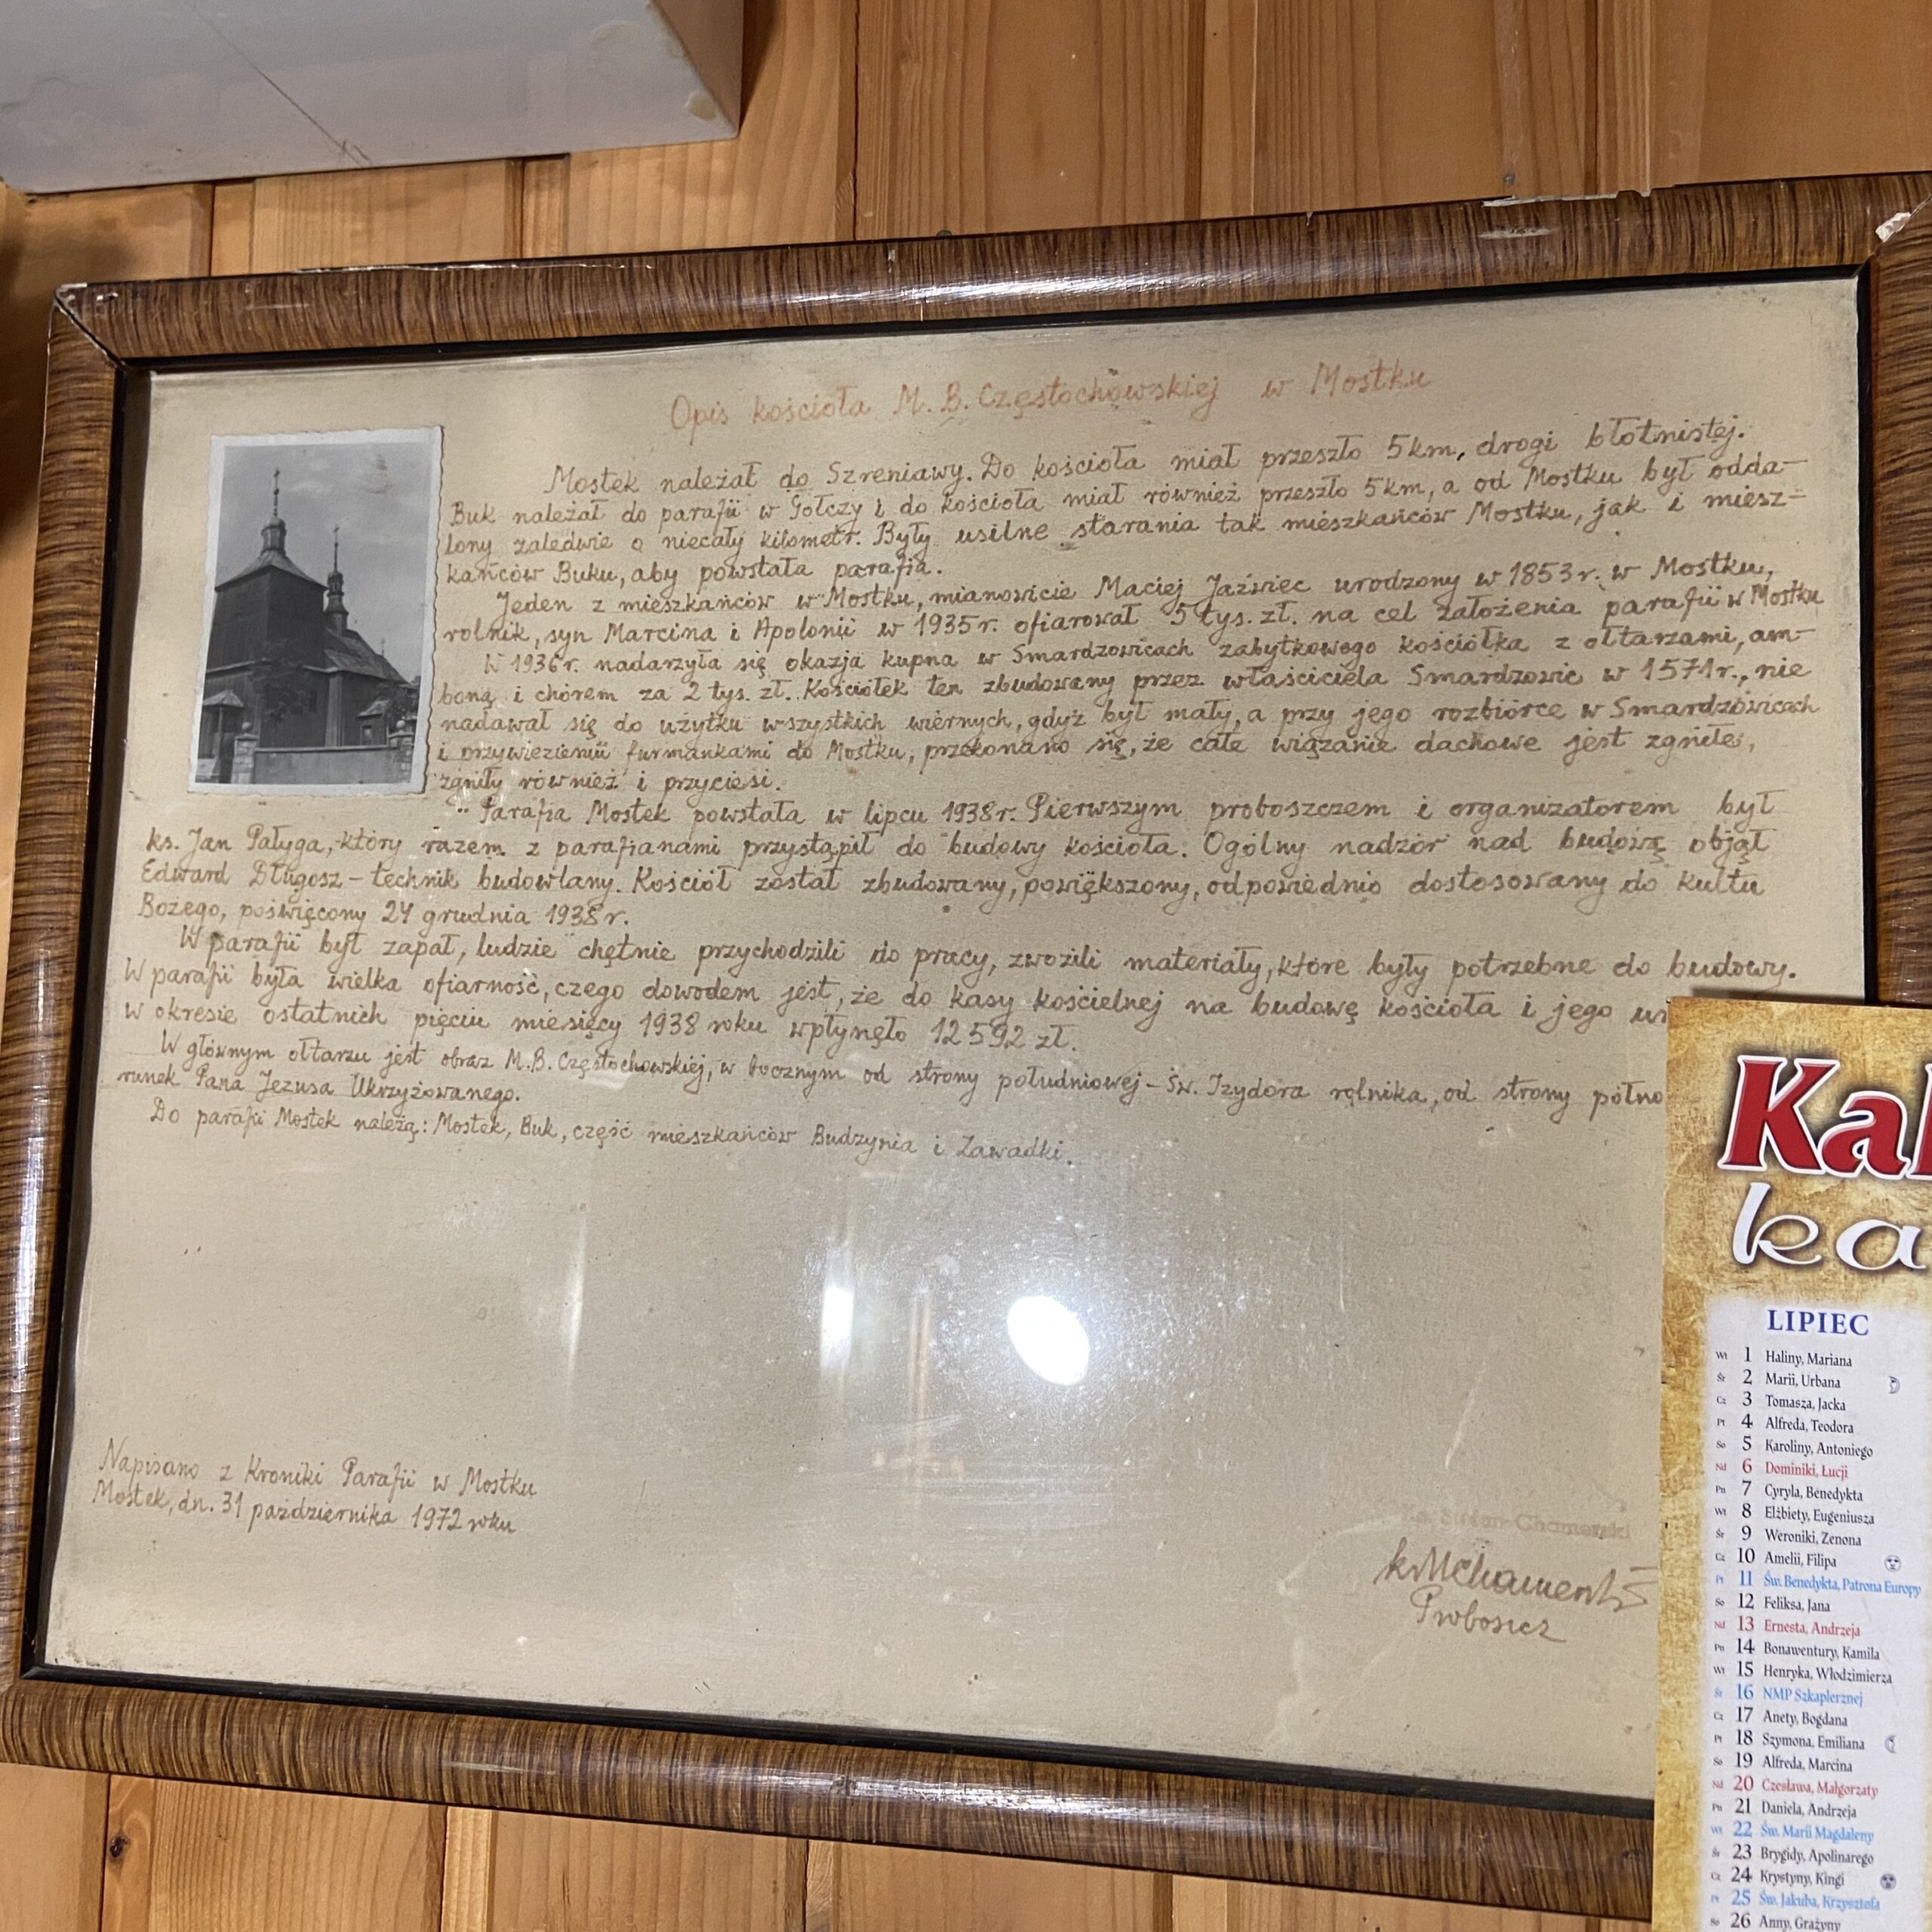 Opis kościoła M. B. Częstochowskiej w Mostku
Mostek należał do Szreniawy. Do kościoła miał przeszło 5 km, drogi błotnistej.
Buk należał do parafii w Gołczy i do kościoła miał również przeszło 5 km, a od Mostku był odda-
lony zaledwie o niecały kilometr. Były usilne starania tak mieszkańców Mostku, jak i miesz-
kańców Buku, aby powstała parafia.
Jeden z mieszkańców w Mostku, mianowicie Maciej Jaźwiec urodzony w 1853 r. w Mostku,
rolnik, syn Marcina i Apolonii w 1935 r. ofiarował 5 tys. zł. na cel założenia parafii w Mostku
W 1936 r. nadarzyła się okazja kupna w Smardzowicach zabytkowego kościółka z ołtarzami, am-
boną i chórem za 2 tys. zł. Kościółek ten zbudowany przez właściciela Smardzowic w 1571 r., nie
nadawał się do użytku wszystkich wiernych, gdyż był mały, a przy jego rozbiórce w Smardzowicach
i przywiezieniu furmankami do Mostku, przekonano się, że całe wiązanie dachowe jest zgniłe,
zgniły również i przyciesi.
Parafia Mostek powstała w lipcu 1938 r. Pierwszym proboszczem i organizatorem był
ks. Jan Pałyga, który razem z parafianami przystąpił do budowy kościoła. Ogólny nadzór nad budową objął
Edward Długosz - technik budowlany. Kościół został zbudowany, powiększony, odpowiednio dostosowany do kultu
Bożego, poświęcony 24 grudnia 1938 r.
W parafii był zapał, ludzie chętnie przychodzili do pracy, zwozili materiały, które były potrzebne do budowy.
W parafii była wielka ofiarność, czego dowodem jest, że do kasy kościelnej na budowę kościoła i jego
w okresie ostatnich pięciu miesięcy 1938 roku wpłynęło 12 592 zł.
W głównym ołtarzu jest obraz M.B. Częstochowskiej, w bocznym od strony południowej - Św. Izydora rolnika, od strony półno
runek Pana Jezusa Ukrzyżowanego.
Do parafii Mostek należą: Mostek, Buk, część mieszkańców Budzynia i Zawadki.
Napisano z Kroniki Parafii w Mostku
Mostek, dn. 31 października 1972 roku
Proboszcz
Ka
ka
LIPIEC
Wt 1 Haliny, Mariana
Śr 2 Marii, Urbana
Cz 3 Tomasza, Jacka
Pt 4 Alfreda, Teodora
So 5 Karoliny, Antoniego
Nd 6 Dominiki, Łucji
Pn 7 Cyryla, Benedykta
Wt 8 Elżbiety, Eugeniusza
Śr 9 Weroniki, Zenona
Cz 10 Amelii, Filipa
Pt 11 Św. Benedykta, Patrona Europy
So 12 Feliksa, Jana
Nd 13 Ernesta, Andrzeja
Pn 14 Bonawentury, Kamila
Wt 15 Henryka, Włodzimierza
Śr 16 NMP Szkaplerznej
Cz 17 Anety, Bogdana
Pt 18 Szymona, Emiliana
So 19 Alfreda, Marcina
Nd 20 Czesława, Małgorzaty
Pn 21 Daniela, Andrzeja
Wt 22 Św. Marii Magdaleny
Śr 23 Brygidy, Apolinarego
Cz 24 Krystyny, Kingi
Pt 25 Św. Jakuba, Krzysztofa
So 26 Anny, Grażyny